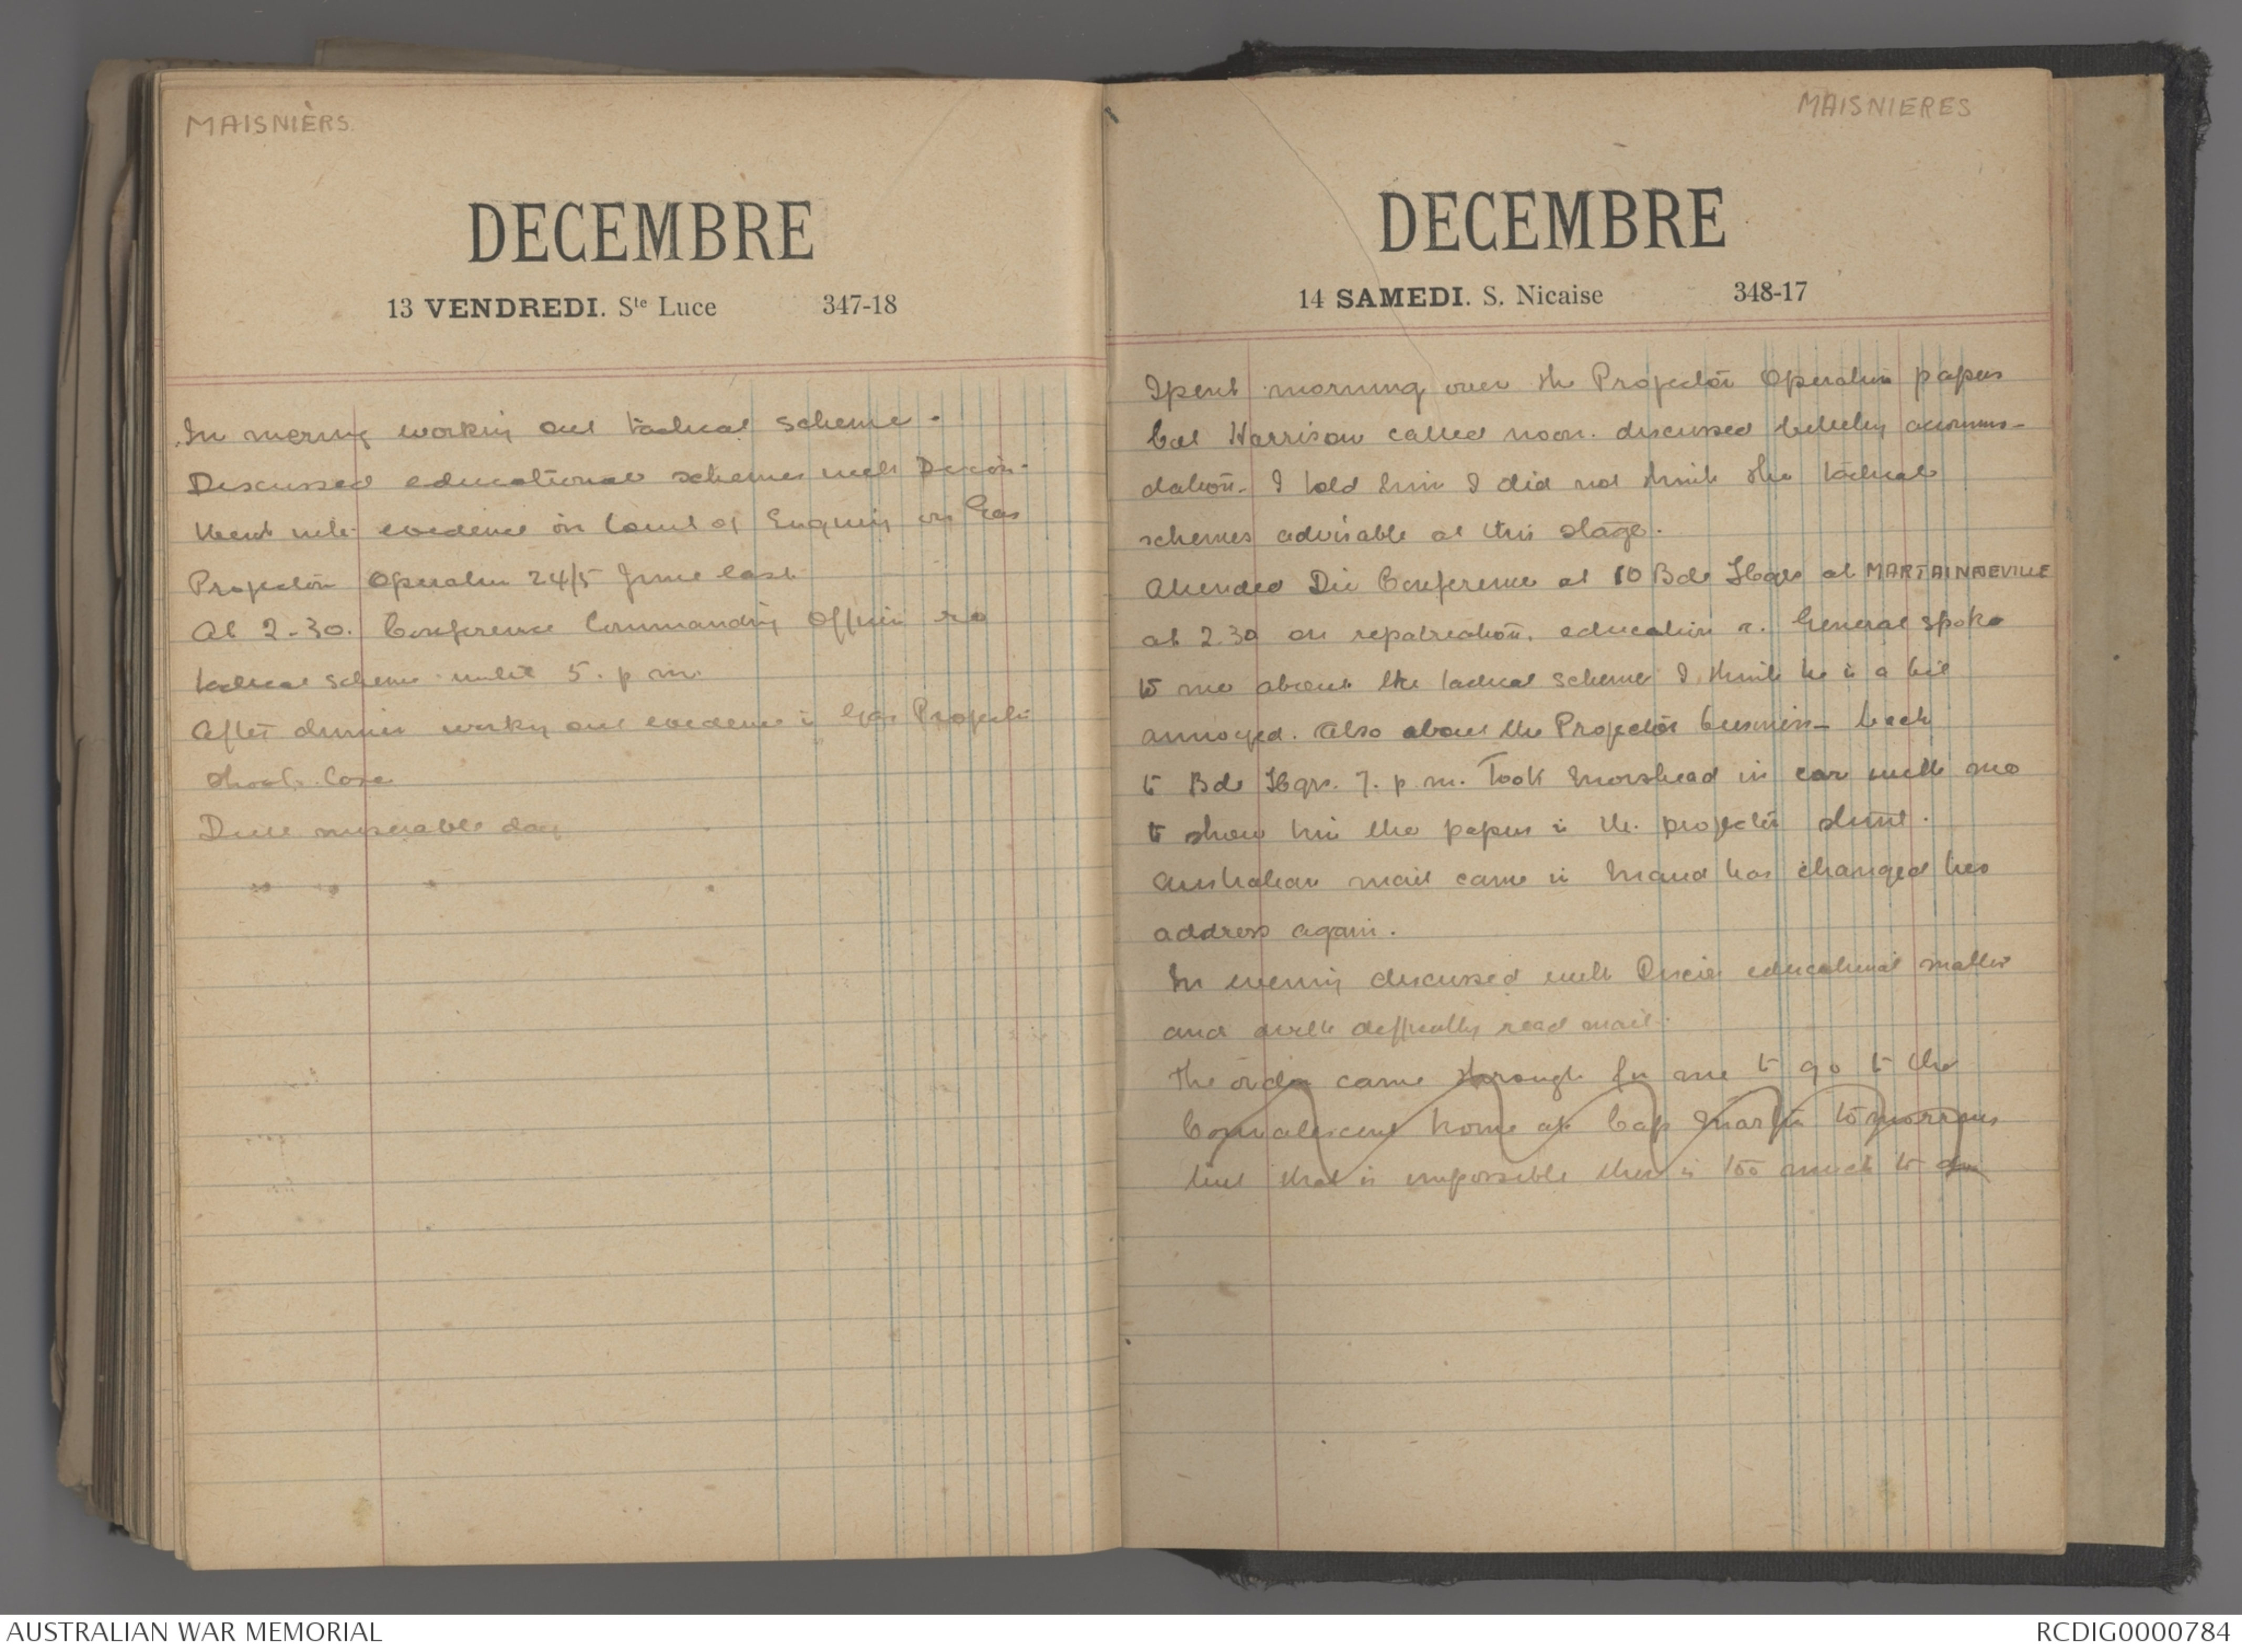 MAISNIÈRS.
DECEMBRE
13 VENDREDI. Ste Luce 347-18
In morng working out tactical scheme.
Discussed educational schemes with
evidence in Court of Enquiry on Gas
Projector Operation 24/5 June last
At 2-30. Conference Commanding Officers re
tactical scheme until 5. p m.
After dinner workg out evidence in Gas Projector
Shoot. Case
Dull miserable day
MAISNIERES
DECEMBRE
14 SAMEDI. S. Nicaise 348-17
Spent morning over the Projector Operation papers
Col Harrison called noon. discussed accommo-
dation. I told him I did not think the tactical
schemes advisable at this stage.
Attended Div Conference at 10 Bde Hqrs at MARTAINNEVILLE
at 2.30 on repatriation, education General spoke
to me about the tactical scheme I think he is a bit
annoyed. Also about the Projector business - back
to Bde Hqrs. 7. p m. Took Morshead in car with me
to show him the papers in the projector stunt.
Australian mail came in Maud has changed her
address again.
In evening discussed with educational matters
and with difficulty read mail.
The order came through for me to go to the
Convalescent home at Cap Martin tomorrow
but that is impossible there is too much to do
AUSTRALIAN WAR MEMORIAL
RCDIG0000784